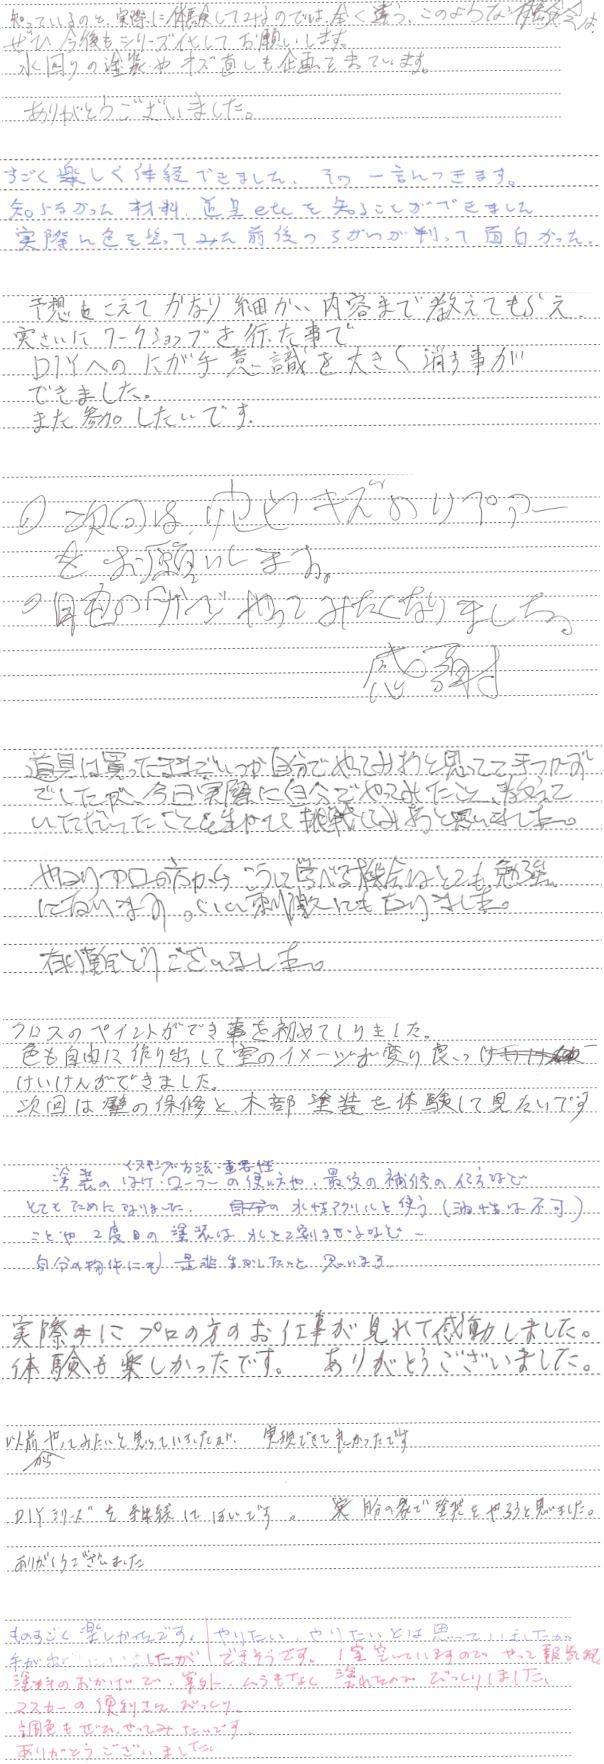 知っているのと、実際に体験してみるのでは、全く違う、このような体験会は、
ぜひ今後もシリーズ化してお願いします。
水回りの塗装やキズ直しも企画を待っています。
ありがとうございました。
すごく楽しく体経できました、その一言につきます。
知らなかった材料、道具etcを知ることができました
実際に色を塗ってみた前後のちがいが判って面白かった。
予想をこえてかなり細かい内容まで教えてもらえ、
実さいにワークショップを行った事で
DIYへのにが手意識を大きく消す事が
できました。
また参加したいです。
① 次回は、キズのリペアー
をお願いします。
やってみたくなりました。
感謝
道具は買ったままでいつか自分でやってみようと思ってて手つかず
でしたが、今日実際に自分でやってみたこと、教えて
いただいたことを生かして挑戦してみようと思いました。
やはりプロの方からこうして学べる機会はとても勉強
になります。いい刺激にもなりました。
有難うございました。
クロスのペイントができ事を初めてしりました。
色も自由に作り出して室のイメージが変り良いっ
けいけんができました。
次回は壁の保修と、木部塗装を体験して見たいです
塗装のはけ・ローラーの使い方や、最後の補修の仕方など
とてもためになりました。水性アクリルを使う(油性は不可)
ことや2度目の塗装は水を2割まぜるなど〜
自分の物件にも是非生かしたいと思います
実際にプロの方のお仕事が見れて感動しました。
体験も楽しかったです。 ありがとうございました。
以前からやってみたいと思っていましたが、実現できて良かったです
DIYシリーズを継続してほしいです。 実際の家で塗装をやろうと思いました。
ありがとうございました
ものすごく楽しかったです。やりたい、やりたいとは思っていましたが、
手が出 したが できそうです。1室空いていますので、やって報告
塗料のおかげで、案外、ムラもなく塗れたのでびっくりしました。
マスカーの便利さにびっくり。
調色もぜひ、やってみたいです。
ありがとうございました。